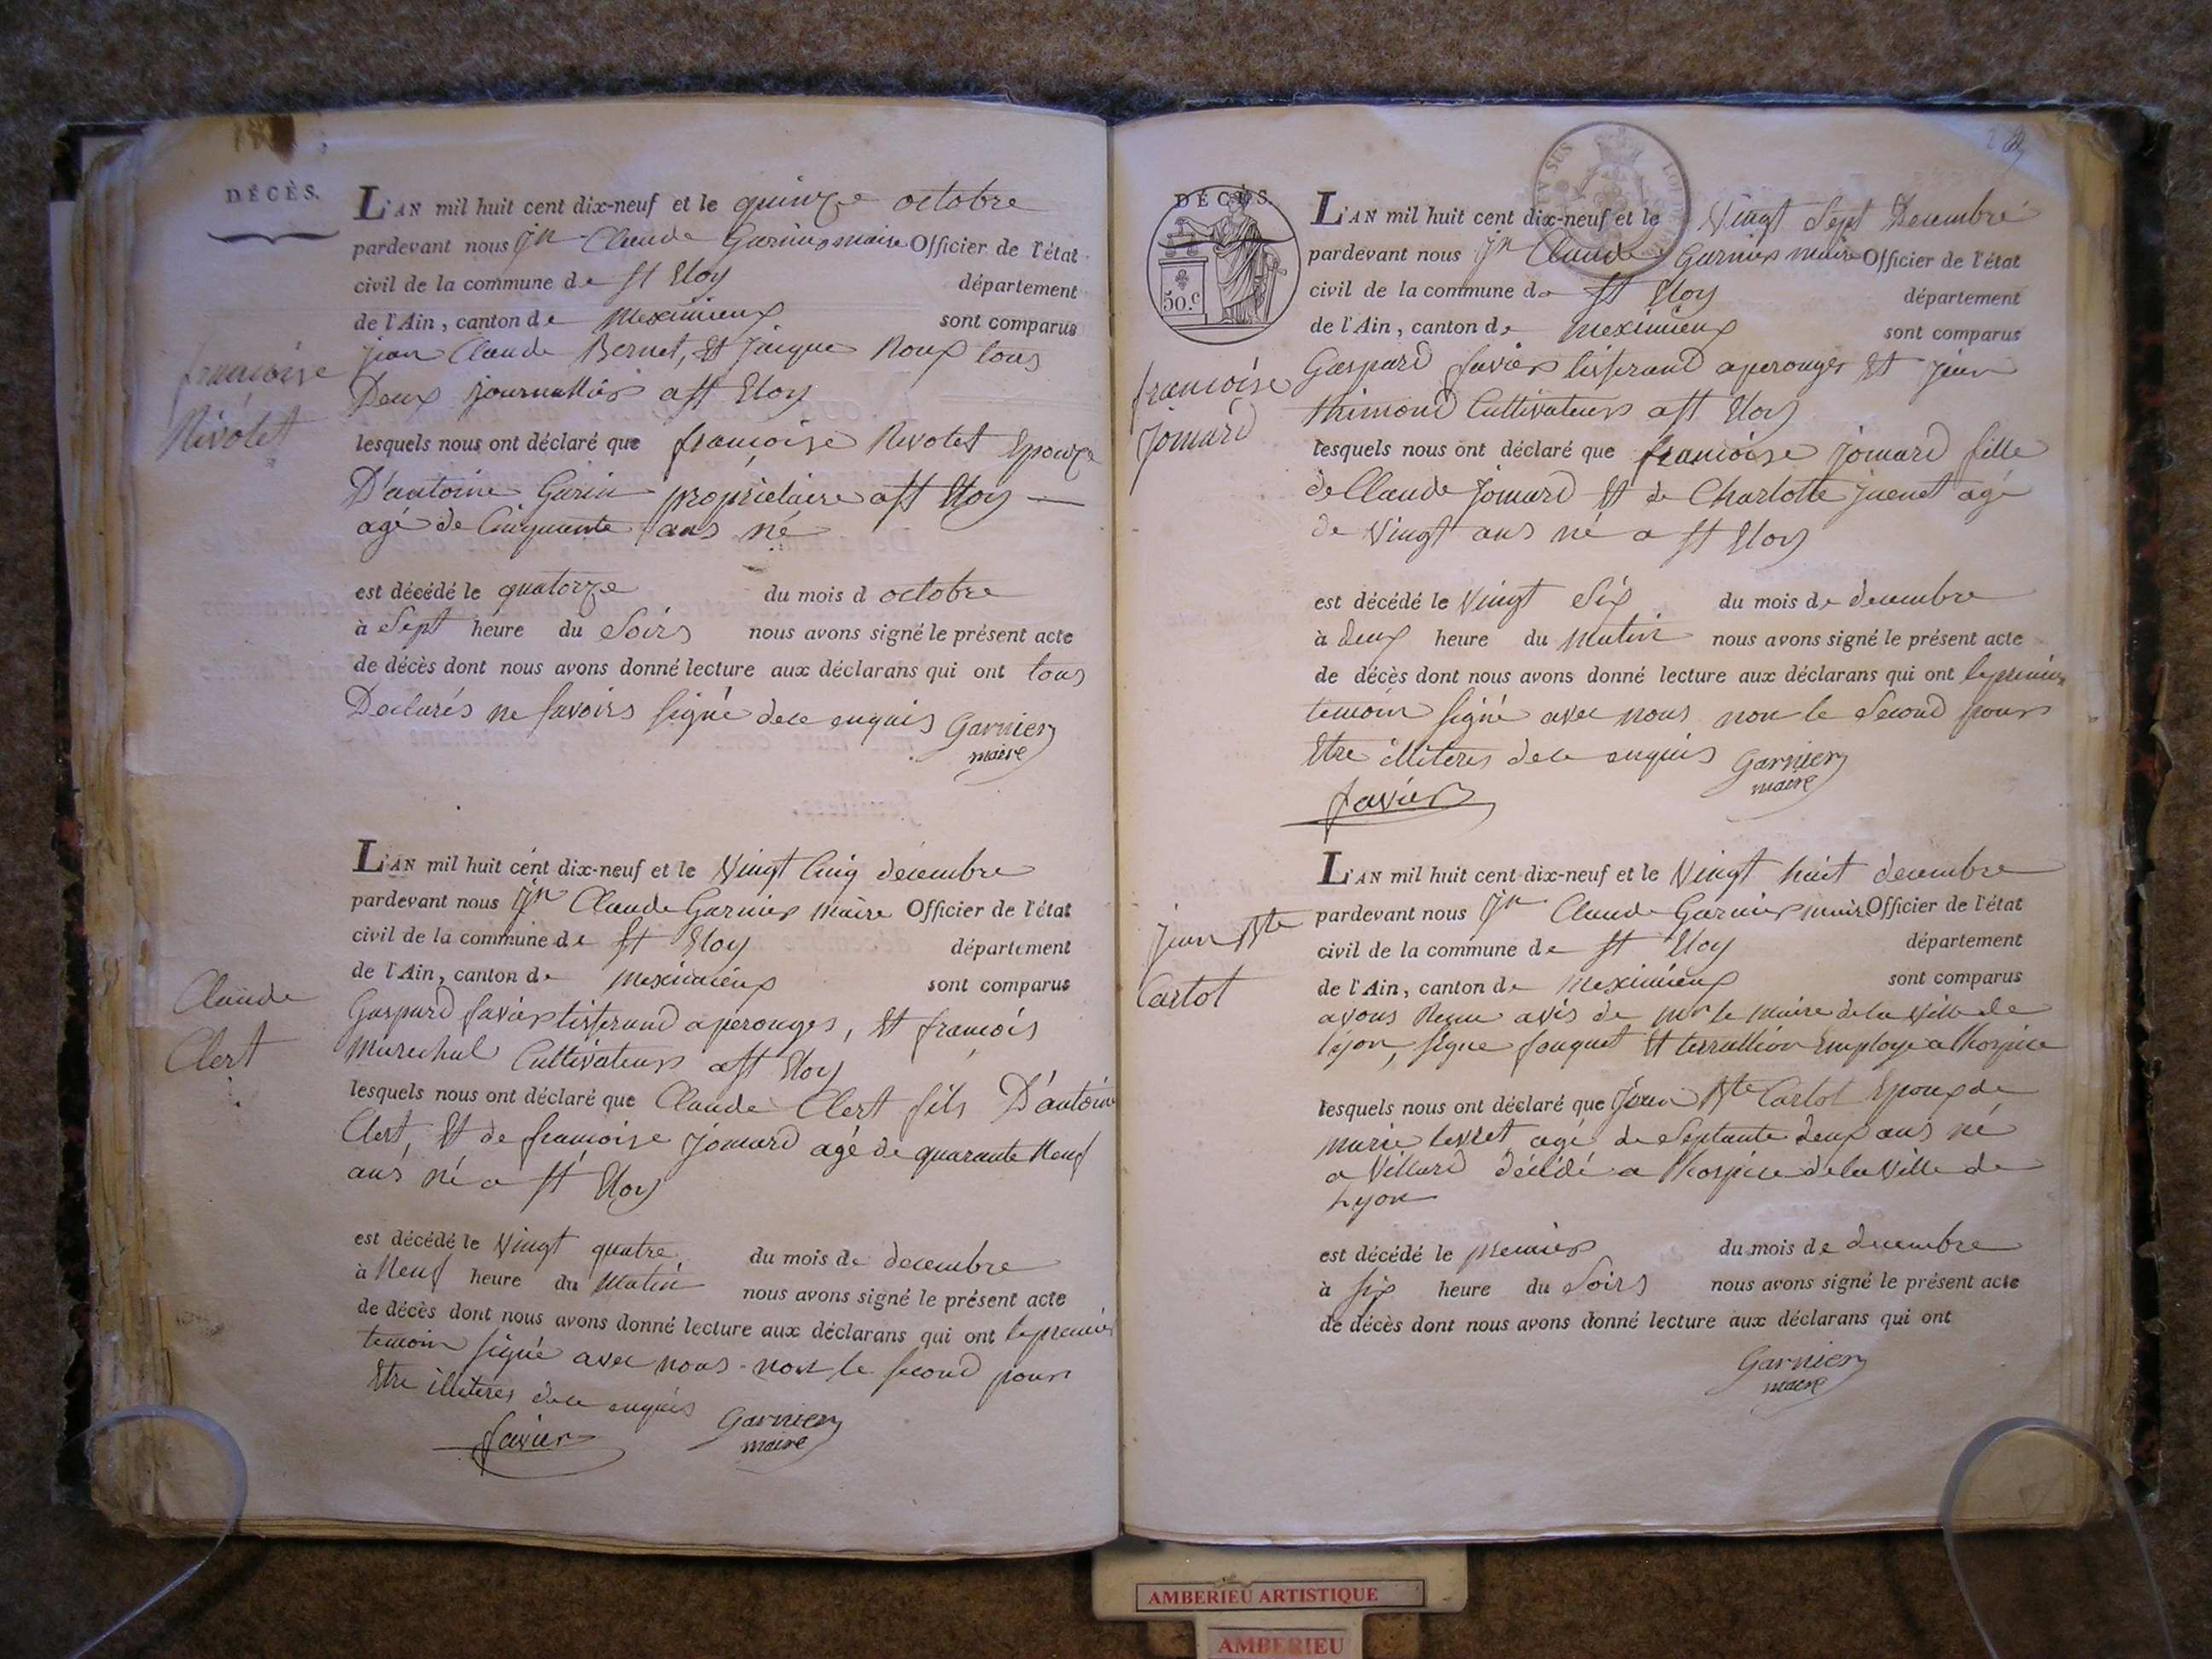 DÉCÈS.
L'AN mil huit cent dix-neuf et le quinze octobre
pardevant nous Jn Claude Garnier maire Officier de l'état
civil de la commune de St Eloy département
de l'Ain, canton de Meximieux sont comparus
jean Claude Bernet, Et Jacque Roux tous
Deux journallier a St Eloy
françoise
Rivolet
lesquels nous ont déclaré que françoise Rivolet Epouze
D'antoine Garin propriétaire a St Eloy
agé de Cinquante ans né
est décédé le quatorze du mois d octobre
à Sept heure du Soirs nous avons signé le présent acte
de décès dont nous avons donné lecture aux déclarans qui ont tous
Declarés ne savoirs signé de ce enquis Garnier
maire
L'AN mil huit cent dix-neuf et le Vingt Cinq décembre
pardevant nous Jn Claude Garnier maire Officier de l'état
civil de la commune de St Eloy département
de l'Ain, canton de Meximieux sont comparus
Claude
Clert
Gaspard favier tisserand a perouges, Et françois
Marechal Cultivateur a St Eloy
lesquels nous ont déclaré que Claude Clert fils D'antoine
Clert, Et de françoise Jomard agé de quarante Neuf
ans né a St Eloy
est décédé le Vingt quatre du mois de decembre
à Neuf heure du Matin nous avons signé le présent acte
de décès dont nous avons donné lecture aux déclarans qui ont le premier
temoin signé avec nous non le second pour
Etre illiteres de ce enquis Garnier
favier maire
DÉCÈS.
50.c
L'AN mil huit cent dix-neuf et le Vingt Sept Decembre
pardevant nous Jn Claude Garnier maire Officier de l'état
civil de la commune de St Eloy département
de l'Ain, canton de Meximieux sont comparus
Gaspard favier tisserand a perouges Et jean
thimond Cultivateur a St Eloy
francoise
Jomard
lesquels nous ont déclaré que françoise jomard fille
de Claude Jomard Et de Charlotte juenet agé
de Vingt ans né a St Eloy
est décédé le Vingt Six du mois de decembre
à deux heure du Matin nous avons signé le présent acte
de décès dont nous avons donné lecture aux déclarans qui ont le premier
temoin signé avec nous non le Second pour
Etre illiteres de ce enquis Garnier
maire
favier
L'AN mil huit cent dix-neuf et le Vingt huit decembre
pardevant nous Jn Claude Garnier maire Officier de l'état
civil de la commune de St Eloy département
de l'Ain, canton de Meximieux sont comparus
jean Bte
Cartot
avons Reçue avis de Mr le Maire de la Ville de
lyon, signe fouquet Et terrallion Employe a lhospice
lesquels nous ont déclaré que Jean Bte Cartot Epoux de
Marie levret agé de Septante deux ans né
a Villard décédé a lhospice de la Ville de
Lyon
est décédé le premier du mois de decembre
à six heure du Soirs nous avons signé le présent acte
de décès dont nous avons donné lecture aux déclarans qui ont
Garnier
maire
AMBERIEU ARTISTIQUE
AMBERIEU